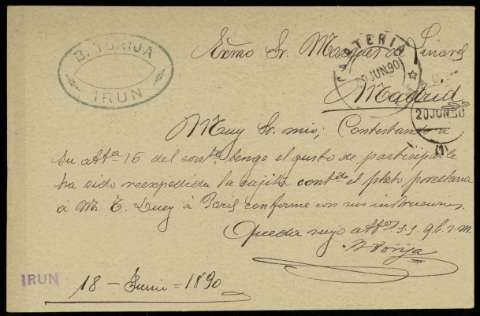 B. TORIJA
IRUN
Exmo Sr. Marques de Linares
CARTERIA
20 JUN 90
Madrid
20 JUN 90
(1)
Muy Sr. mio; Contestando a
su atta 15 del contе tengo el gusto de participarle
ha sido reexpedida la cajita contdo el plato porcelana
a Mr. E. à Paris conforme con sus instrucciones.
Queda suyo atto s.s. q.b.s.m.
B Torija
IRUN
18 - Junio = 1890